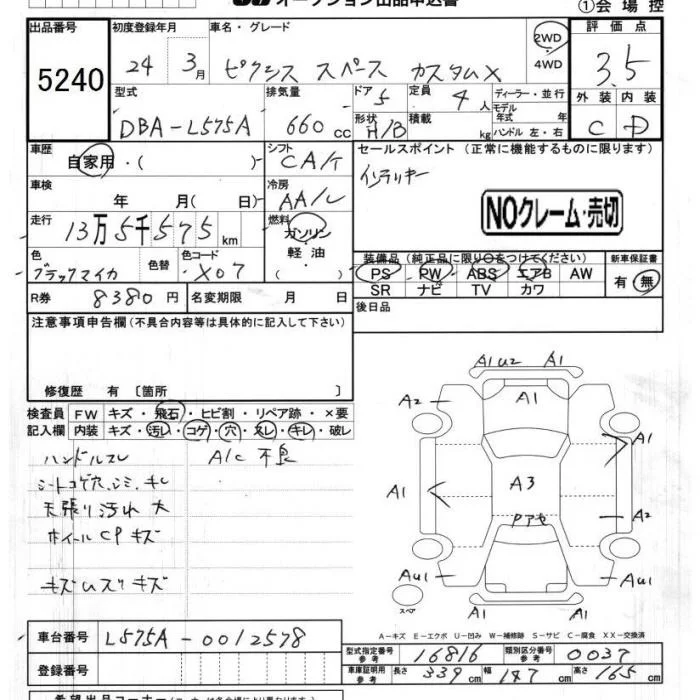 オークション出品申込書
①会場控
出品番号 初度登録年月 車名・グレード 評価点
5240
24年 3月 ピクシス スペース カスタムX 2WD・4WD 3.5
型式 排気量 ドア 定員 ディーラー・並行
DBA-L575A 660cc 5 4人 モデル年式 年 外装 内装
形状 H/B 積載 kg ハンドル 左・右 C D
車歴 自家用・( ) シフト CA/T セールスポイント (正常に機能するものに限ります)
車検 年 月( 日) 冷房 AA/C インテリキー
走行 13万5千575km 燃料 ガソリン・軽油 NOクレーム・売切
色 ブラックマイカ 色替 色コード X07
装備品 (純正品に限り○をつけてください) 新車保証書
PS PW ABS エアB AW 有・無
SR ナビ TV カワ
R券 8380円 名変期限 月 日 後日品
注意事項申告欄(不具合内容等は具体的に記入して下さい)
修復歴 有 〔箇所 〕
検査員 FW キズ・飛石・ヒビ割・リペア跡・×要
記入欄 内装 キズ・汚レ・コゲ・穴・ヌレ・キレ・破レ
ハンドルスレ A/C 不良
シートコゲ穴、シミ、キレ
天張り汚れ 大
ホイールCPキズ
キズ
A1U2 A1
A2 A1
A1
A1 A3
Pアセ A2
AU1 AU1
スペア A1 A1
A-キズ E-エクボ U-凹み W-補修跡 S-サビ C-腐食 XX-交換済
車台番号 L575A-0012578
型式指定番号 参考 16816 類別区分番号 参考 0037
登録番号
車庫証明用 参考 長さ 339cm 幅 147cm 高さ 165cm
希望出品コーナー